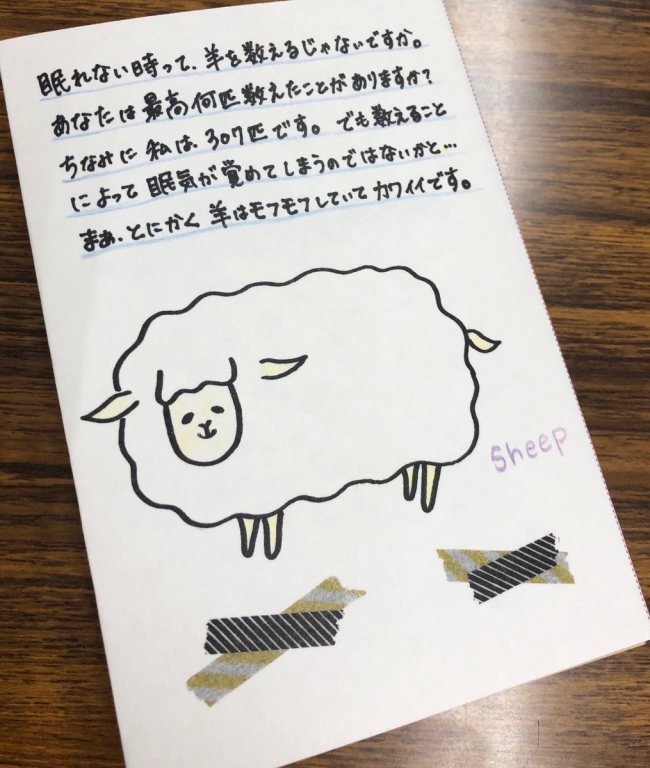 眠れない時って、羊を数えるじゃないですか。
あなたは最高何匹数えたことがありますか?
ちなみに私は、307匹です。でも数えること
によって眠気が覚めてしまうのではないかと…
まぁ、とにかく羊はモフモフしていてカワイイです。
sheep